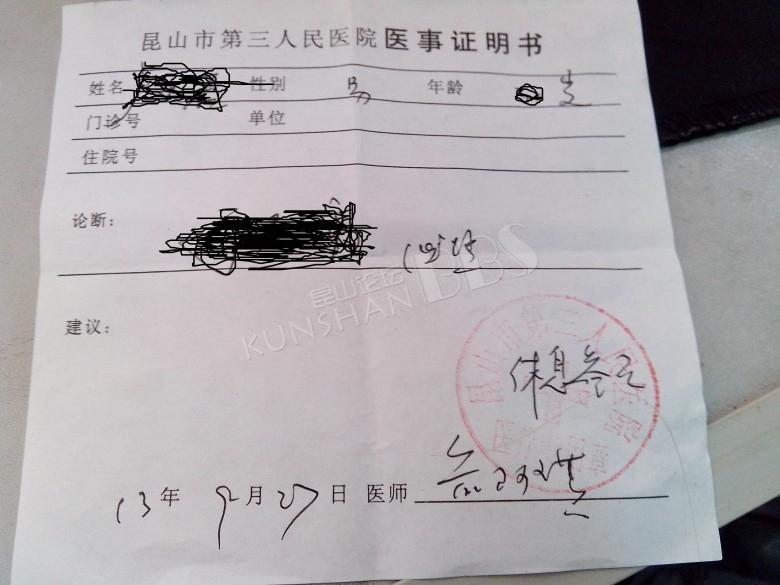 昆山市第三人民医院医事证明书
姓名 性别 男 年龄 岁
门诊号 单位
住院号
论断：
昆山论坛
KUNSHAN BBS
建议：
昆山市第三人民医院
休息叁天
13年9月27日 医师